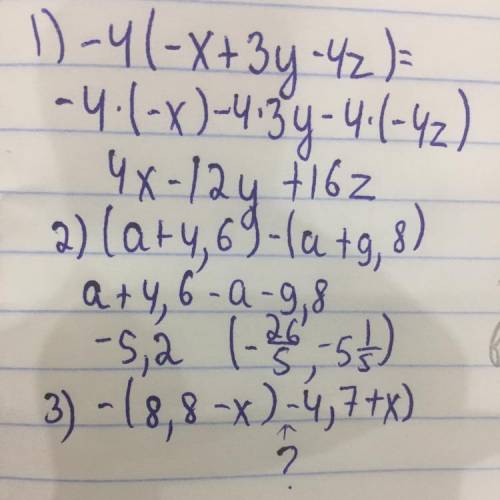 1) -4(-x+3y-4z)=
-4·(-x)-4·3y-4·(-4z)
4x-12y+16z
2) (a+4,6)-(a+9,8)
a+4,6-a-9,8
-5,2 (-26/5, -5 1/5)
3) -(8,8-x)-4,7+x)
↑
?